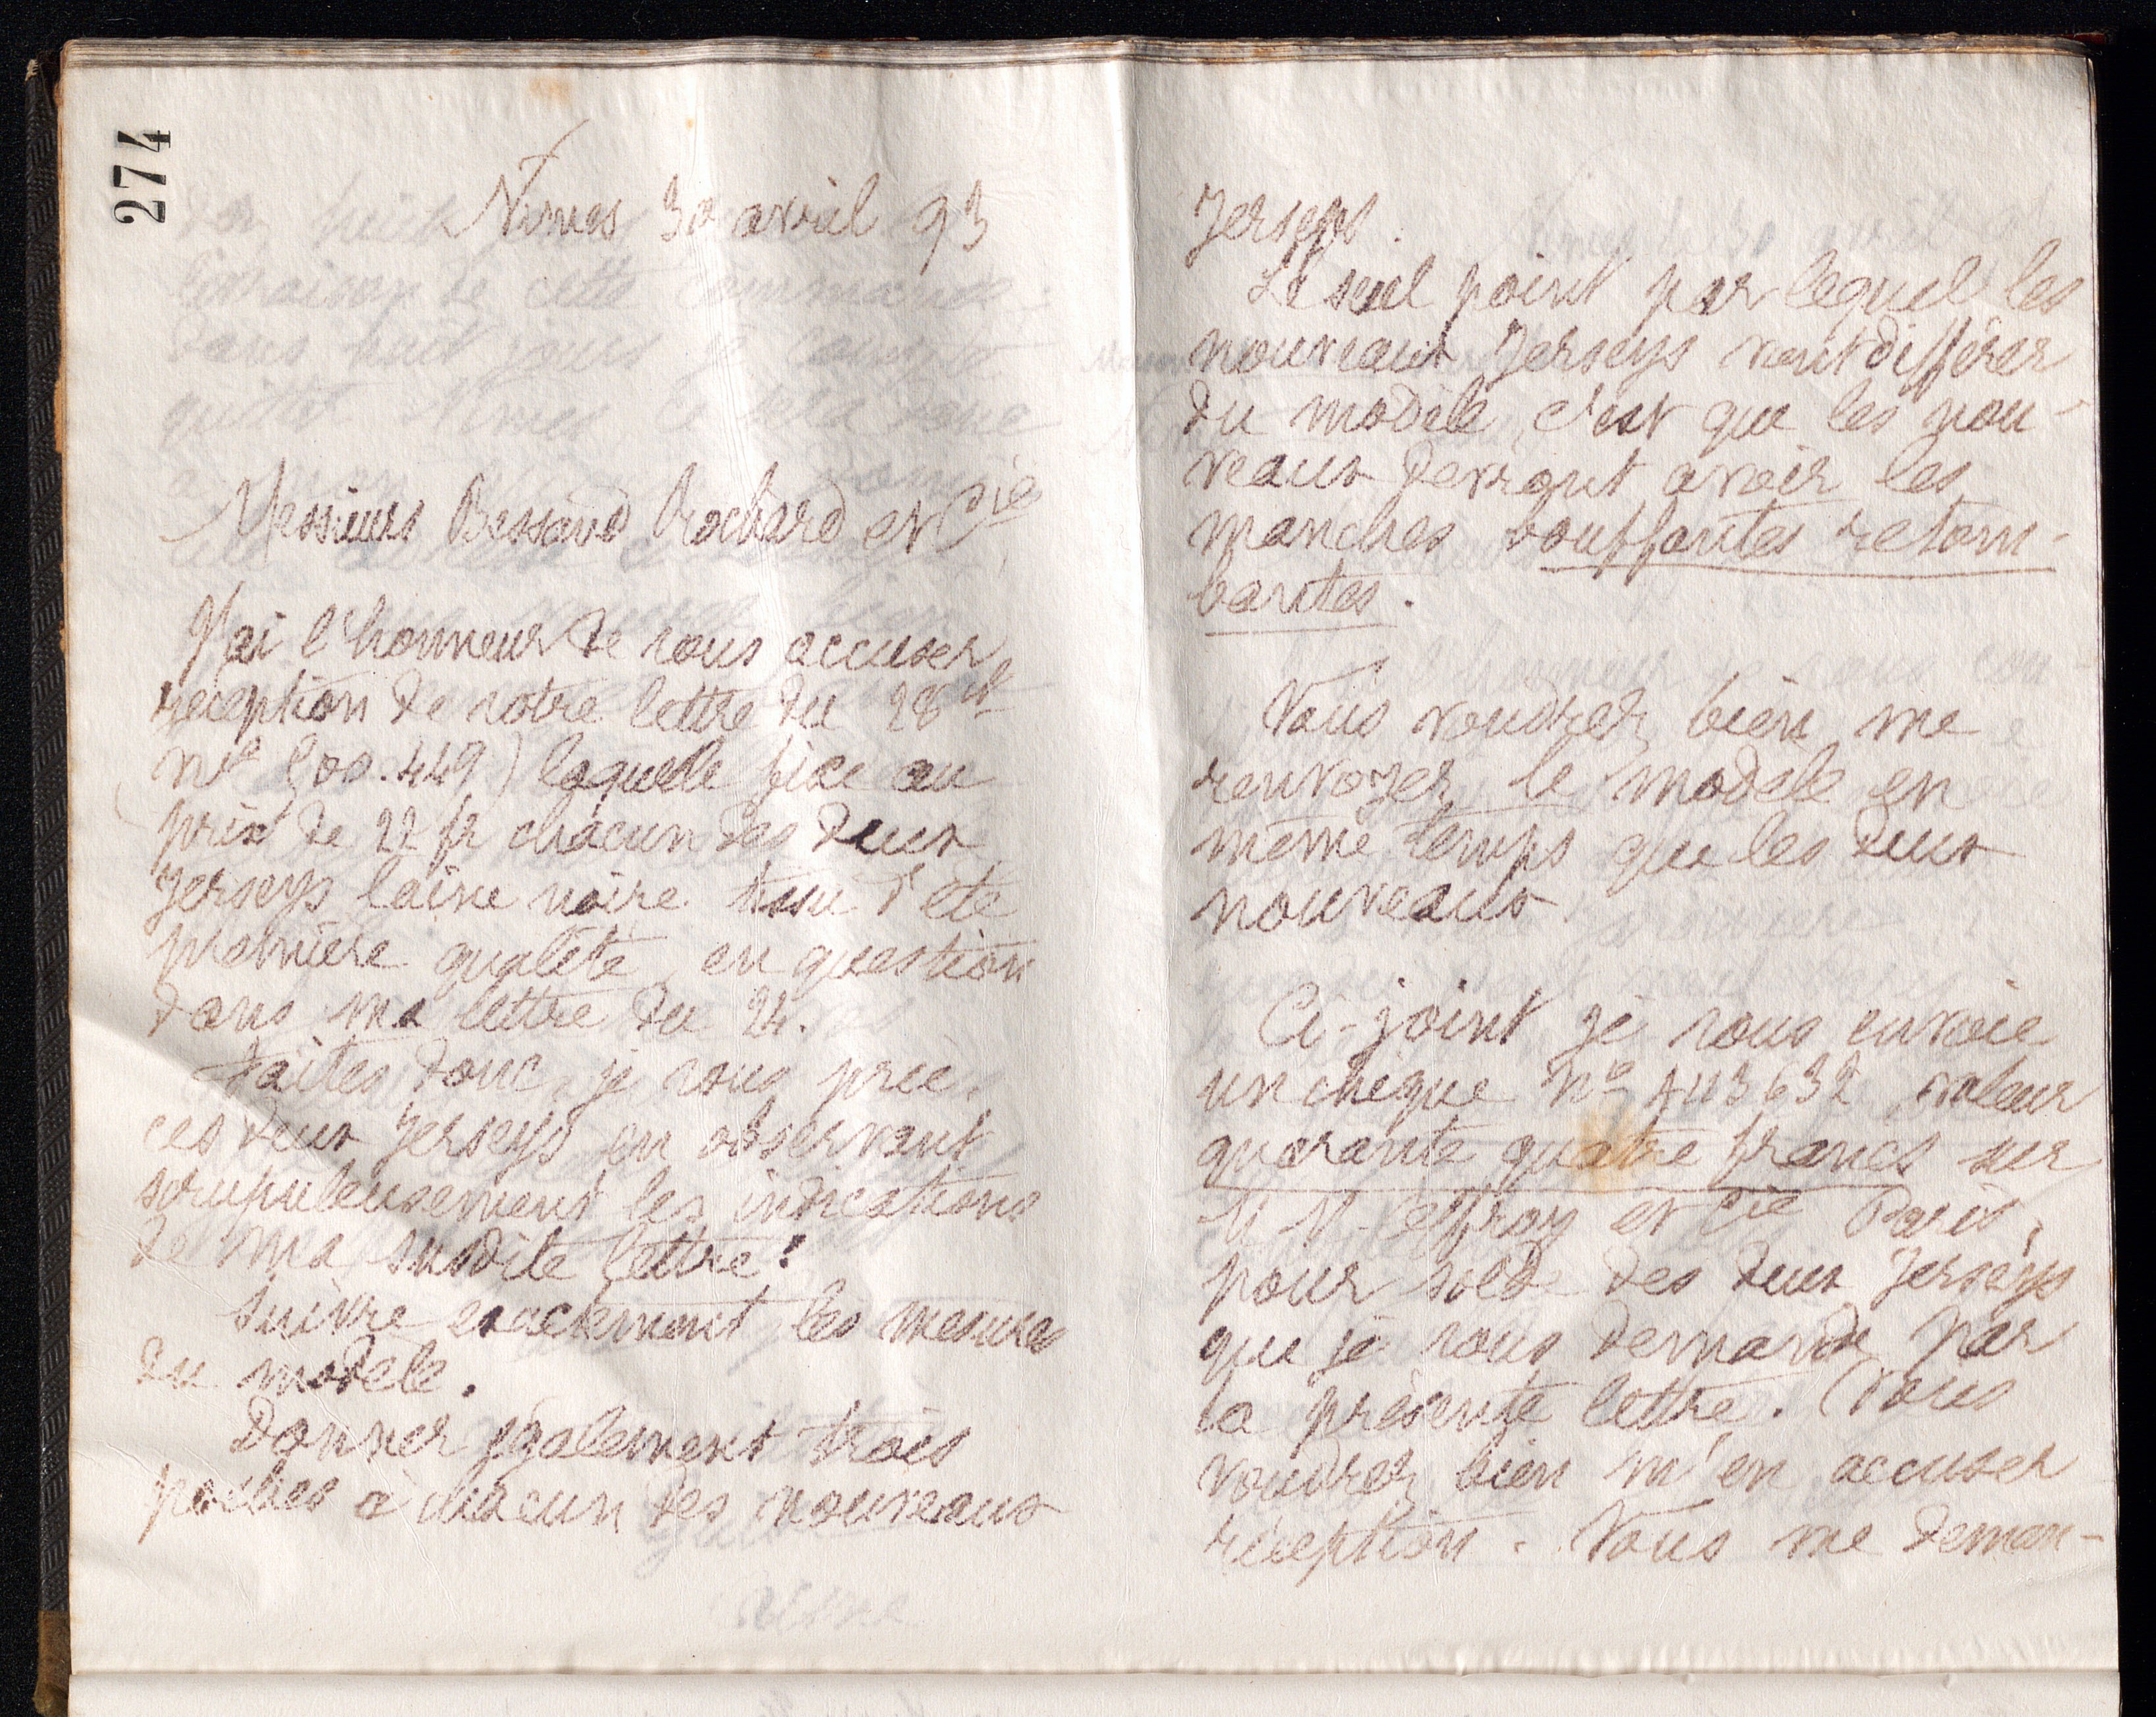 274
Nimes 30 avril 93
Messieurs Bessand Rochard et Cie
J'ai l'honneur de vous accuser
réception de votre lettre du 28 ct
no 449) laquelle fixe au
prix de 22 fr chacun des deux
Jerseys laine noire tissu d'été
première qualité, en question
dans ma lettre du 24.
Faites donc, je vous prie,
ces deux Jerseys en observant
scrupuleusement les indications
de ma susdite lettre:
Suivre exactement les mesures
du modèle.
Donner également trois
poches à chacun des nouveaux
Jerseys.
Le seul point par lequel les
nouveaux Jerseys vont différer
du modèle, c'est que les nou-
veaux devront avoir les
manches bouffantes retom-
bantes.
Vous voudrez bien me
renvoyer le modèle en
même temps que les deux
nouveaux.
Ci-joint je vous envoie
un chèque no 443632 valeur
quarante quatre francs sur
et Cie Paris,
pour solde des deux Jerseys
que je vous demande par
la présente lettre. Vous
voudrez bien m'en accuser
réception. Vous me deman-